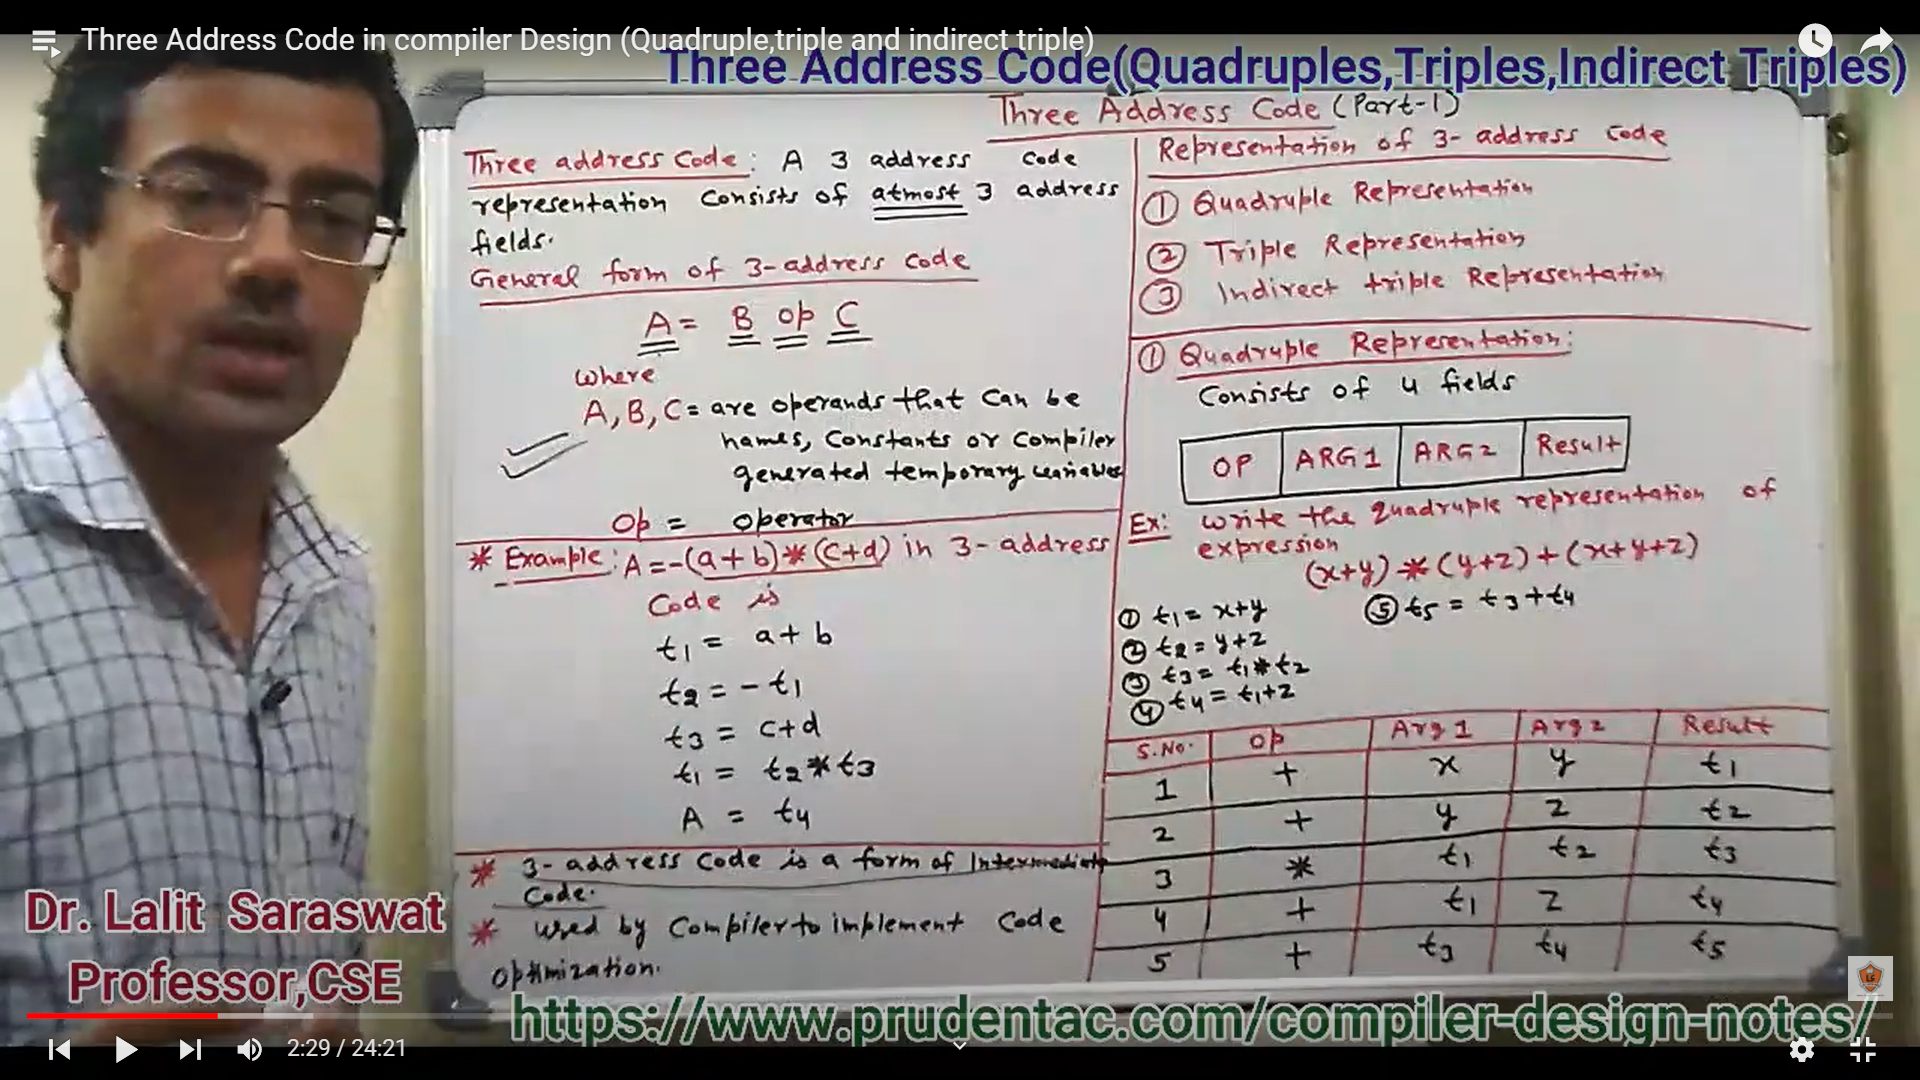 Three Address Code in compiler Design (Quadruple,triple and indirect triple)
Three Address Code(Quadruples,Triples,Indirect Triples)
Three Address Code (Part-1)
Three address Code: A 3 address Code
representation Consists of atmost 3 address
fields.
General form of 3-address Code
A = B op C
where
A, B, C = are operands that can be
names, Constants or Compiler
generated temporary variables
Op = operator
* Example: A = -(a+b)*(c+d) in 3-address
Code is
t1 = a+b
t2 = -t1
t3 = c+d
t1 = t2*t3
A = t4
* 3-address Code is a form of Intermediate
Code.
* used by Compiler to implement Code
Optimization.
Representation of 3-address Code
① Quadruple Representation
② Triple Representation
③ Indirect triple Representation
① Quadruple Representation:
Consists of 4 fields
OP ARG1 ARG2 Result
Ex: write the quadruple representation of
expression
(x+y)*(y+z)+(x+y+z)
① t1 = x+y ⑤ t5 = t3+t4
② t2 = y+z
③ t3 = t1*t2
④ t4 = t1+z
S.No. Op Arg1 Arg2 Result
1 + x y t1
2 + y z t2
3 * t1 t2 t3
4 + t1 z t4
5 + t3 t4 t5
Dr. Lalit Saraswat
Professor,CSE
https://www.prudentac.com/compiler-design-notes/
2:29 / 24:21